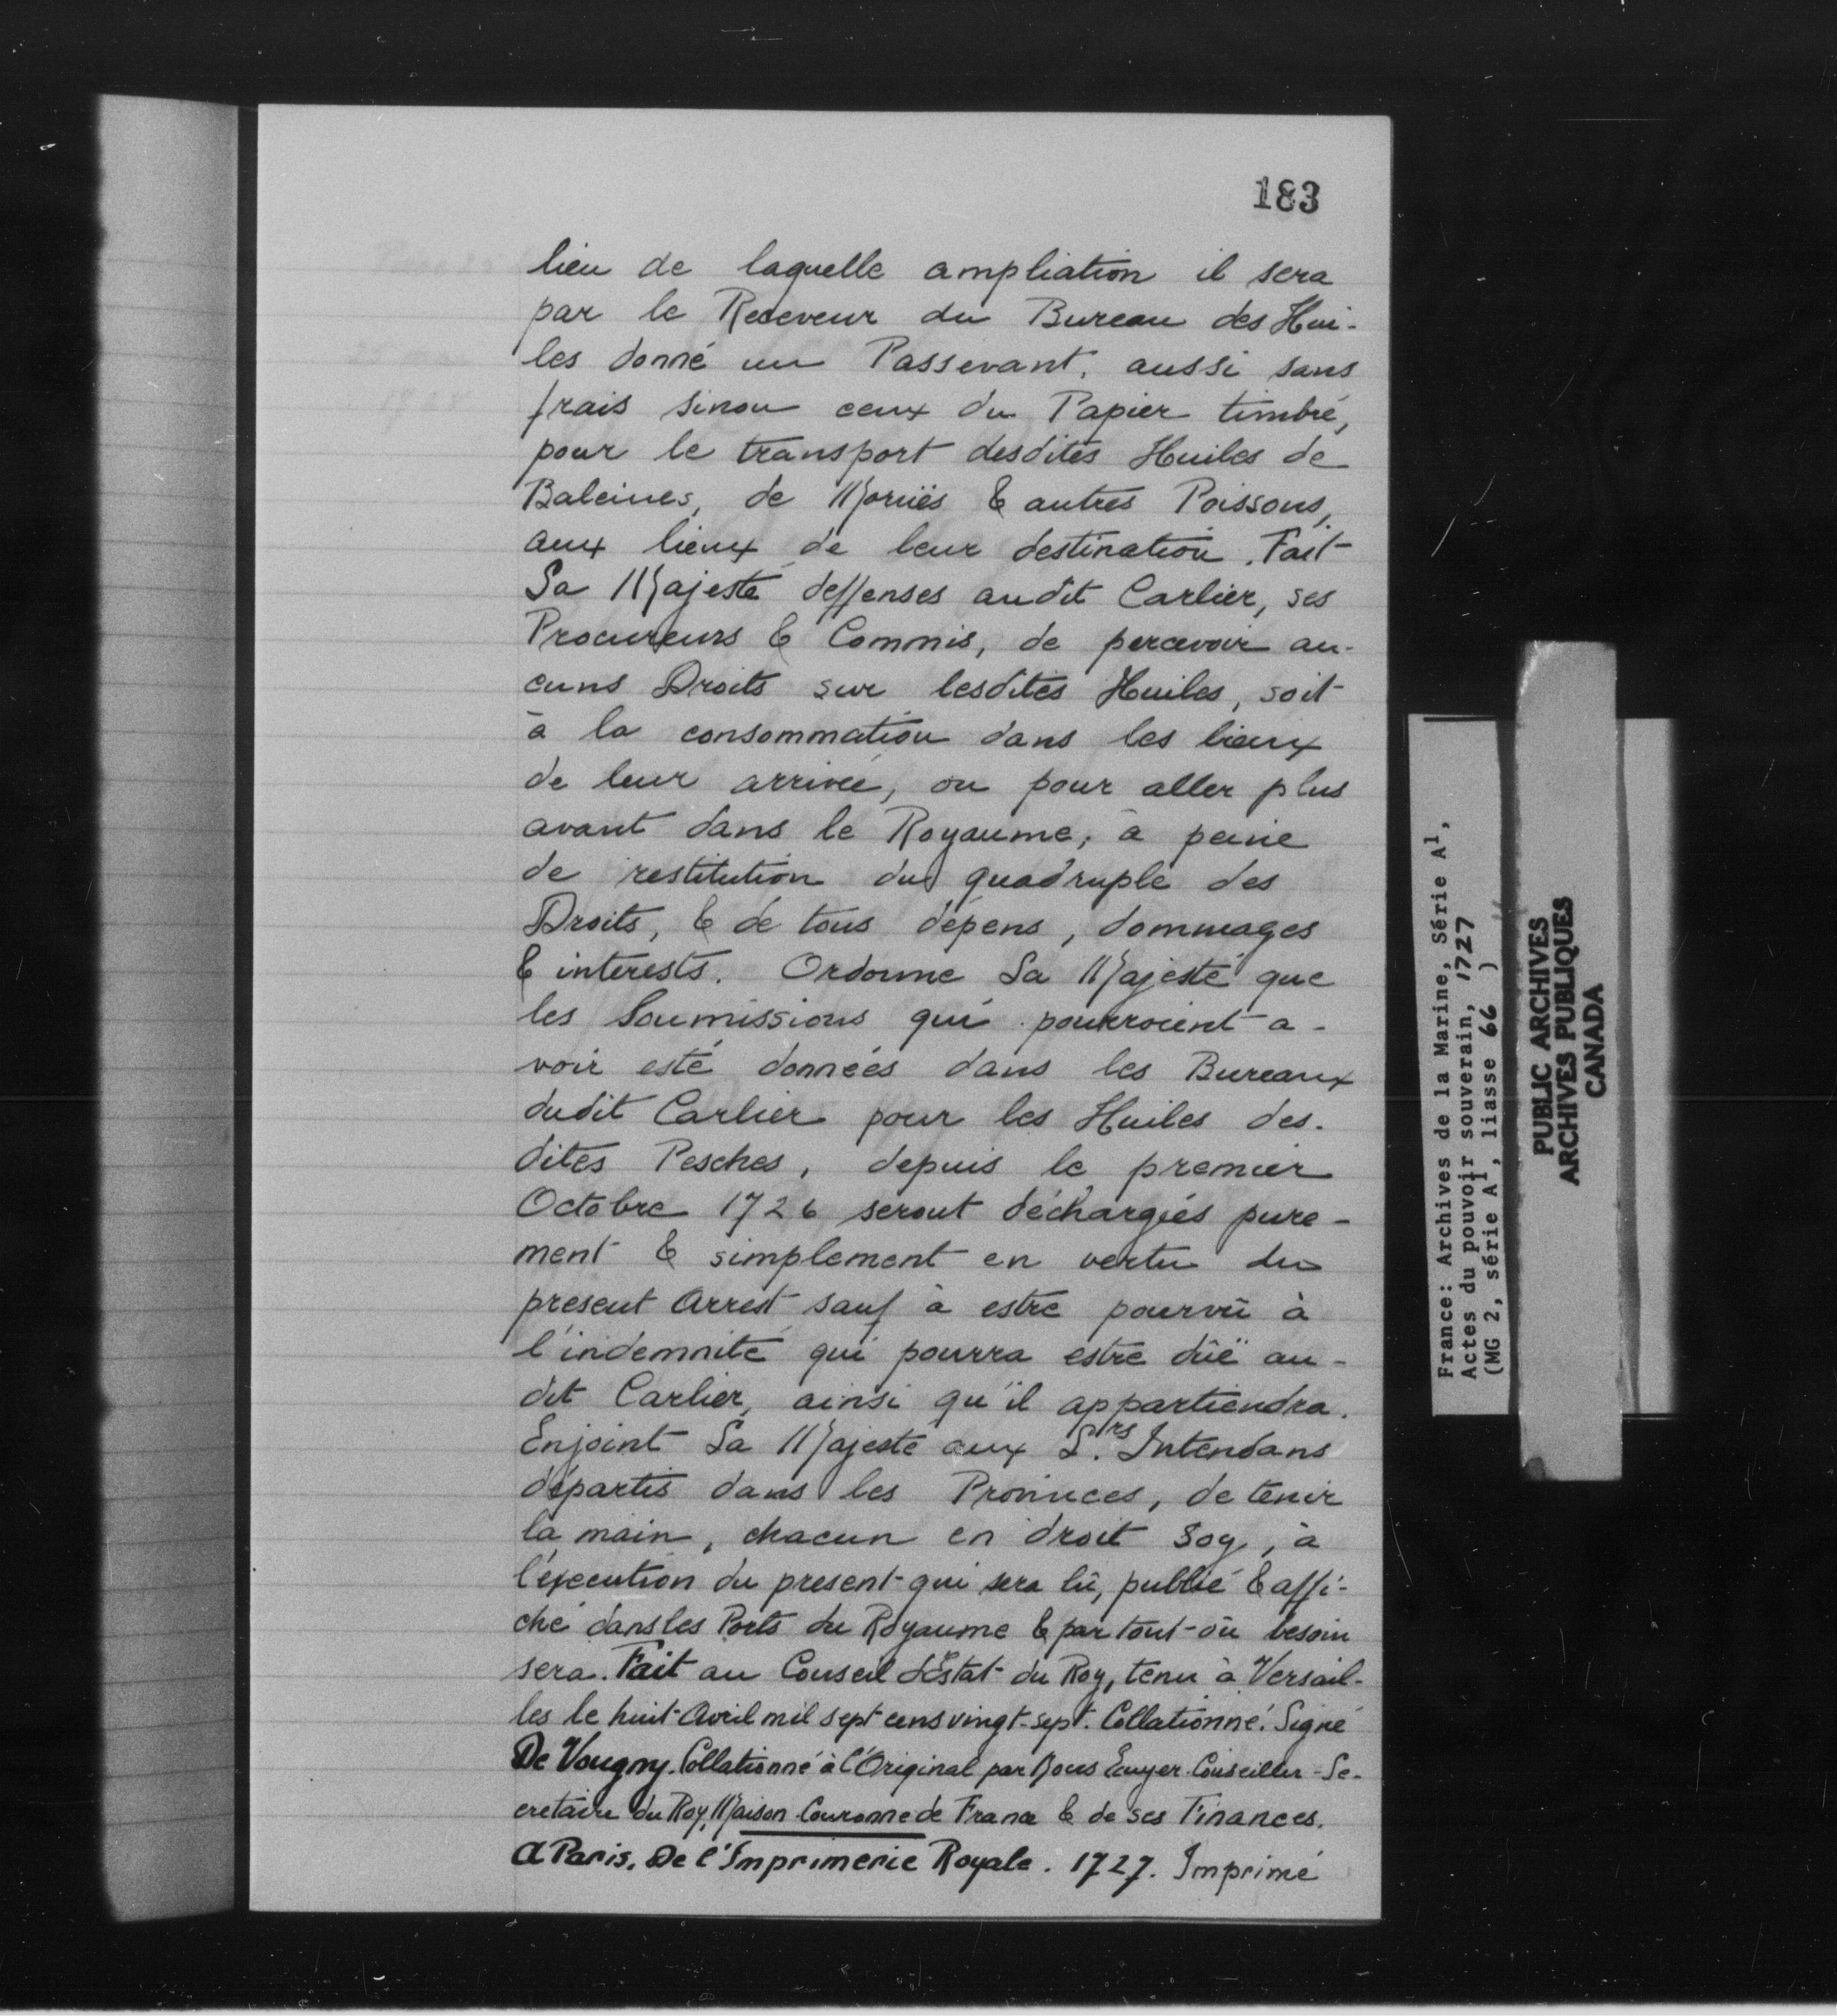 183
lieu de laquelle ampliation il sera
par le Receveur du Bureau des Hui-
les donné un Passevant, aussi sans
frais sinon ceux du Papier timbré,
pour le transport desdites Huiles de
Baleines, de Moruës & autres Poissons,
aux lieux de leur destination. Fait
Sa Majesté deffenses audit Carlier, ses
Procureurs & Commis, de percevoir au-
cuns Droits sur lesdites Huiles, soit
à la consommation dans les lieux
de leur arrivée, ou pour aller plus
avant dans le Royaume, à peine
de restitution du quadruple des
Droits, & de tous dépens, dommages
& interests. Ordonne Sa Majesté que
les Soumissions qui pourroient a-
voir esté données dans les Bureaux
dudit Carlier pour les Huiles des-
dites Pesches, depuis le premier
Octobre 1726 seront déchargées pure-
ment & simplement en vertu du
present Arrest sauf à estre pourvû à
l'indemnité qui pourra estre dûë au-
dit Carlier, ainsi qu'il appartiendra.
Enjoint Sa Majesté aux S.rs Intendans
départis dans les Provinces, de tenir
la main, chacun en droit soy, à
l'éxecution du present qui sera lû, publié & affi-
ché dans les Ports du Royaume & par tout où besoin
sera. Fait au Conseil d'Estat du Roy, tenu à Versail-
les le huit Avril mil sept cens vingt-sept. Collationné. Signé
De Vougny. Collationné à l'Original par Nous Ecuyer Conseiller-Se-
cretaire du Roy, Maison Couronne de France & de ses Finances.
A Paris. De l'Imprimerie Royale. 1727. Imprimé
France: Archives de la Marine, Série A1,
Actes du pouvoir souverain, 1727
(MG 2, série A1, liasse 66 )
PUBLIC ARCHIVES
ARCHIVES PUBLIQUES
CANADA